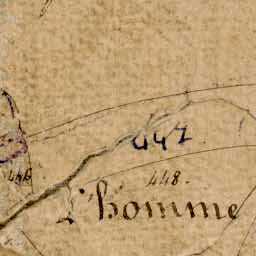 447
446
448.
L'homme